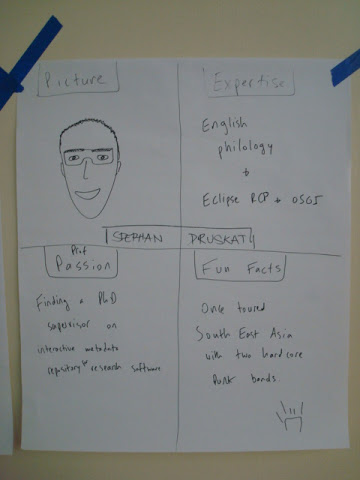 Picture
Expertise
English
philology
+
Eclipse RCP + OSGI
STEPHAN DRUSKAT
Prof.
Passion
Finding a PhD
supervisor on
interactive metadata
repository for research software
Fun Facts
Once toured
South East Asia
with two hardcore
punk bands